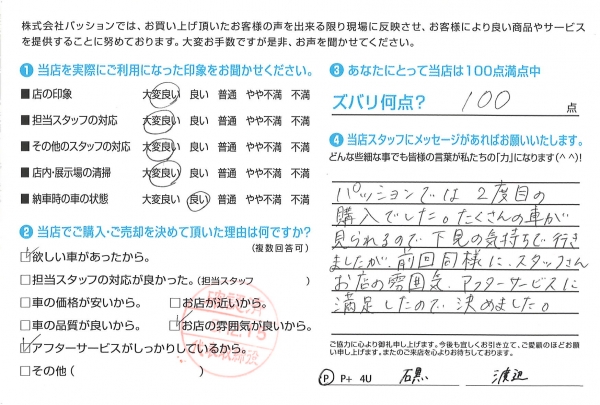 株式会社パッションでは、お買い上げ頂いたお客様の声を出来る限り現場に反映させ、お客様により良い商品やサービス
を提供することに努めております。大変お手数ですが是非、お声を聞かせてください。
❶ 当店を実際にご利用になった印象をお聞かせください。
■ 店の印象 大変良い 良い 普通 やや不満 不満
■ 担当スタッフの対応 大変良い 良い 普通 やや不満 不満
■ その他のスタッフの対応 大変良い 良い 普通 やや不満 不満
■ 店内・展示場の清掃 大変良い 良い 普通 やや不満 不満
■ 納車時の車の状態 大変良い 良い 普通 やや不満 不満
❷ 当店でご購入・ご売却を決めて頂いた理由は何ですか?
(複数回答可)
☑欲しい車があったから。
□担当スタッフの対応が良かった。(担当スタッフ )
□車の価格が安いから。 □お店が近いから。
□車の品質が良いから。 ☑お店の雰囲気が良いから。
☑アフターサービスがしっかりしているから。
□その他( )
❸ あなたにとって当店は100点満点中
ズバリ何点? 100 点
❹ 当店スタッフにメッセージがあればお願いいたします。
どんな些細な事でも皆様の言葉が私たちの「力」になります(^^)!
パッションでは2度目の
購入でした。たくさんの車が
見られるので下見の気持ちで行き
ましたが、前回同様に、スタッフさん
お店の雰囲気、アフターサービスに
満足したので決めました。
ご協力に心より御礼申し上げます。今後も宜しくお引き立て、ご愛顧のほどお願い申し上げます。またのご来店を心よりお待ちしております。
P P+ 4U 石黒 渡辺